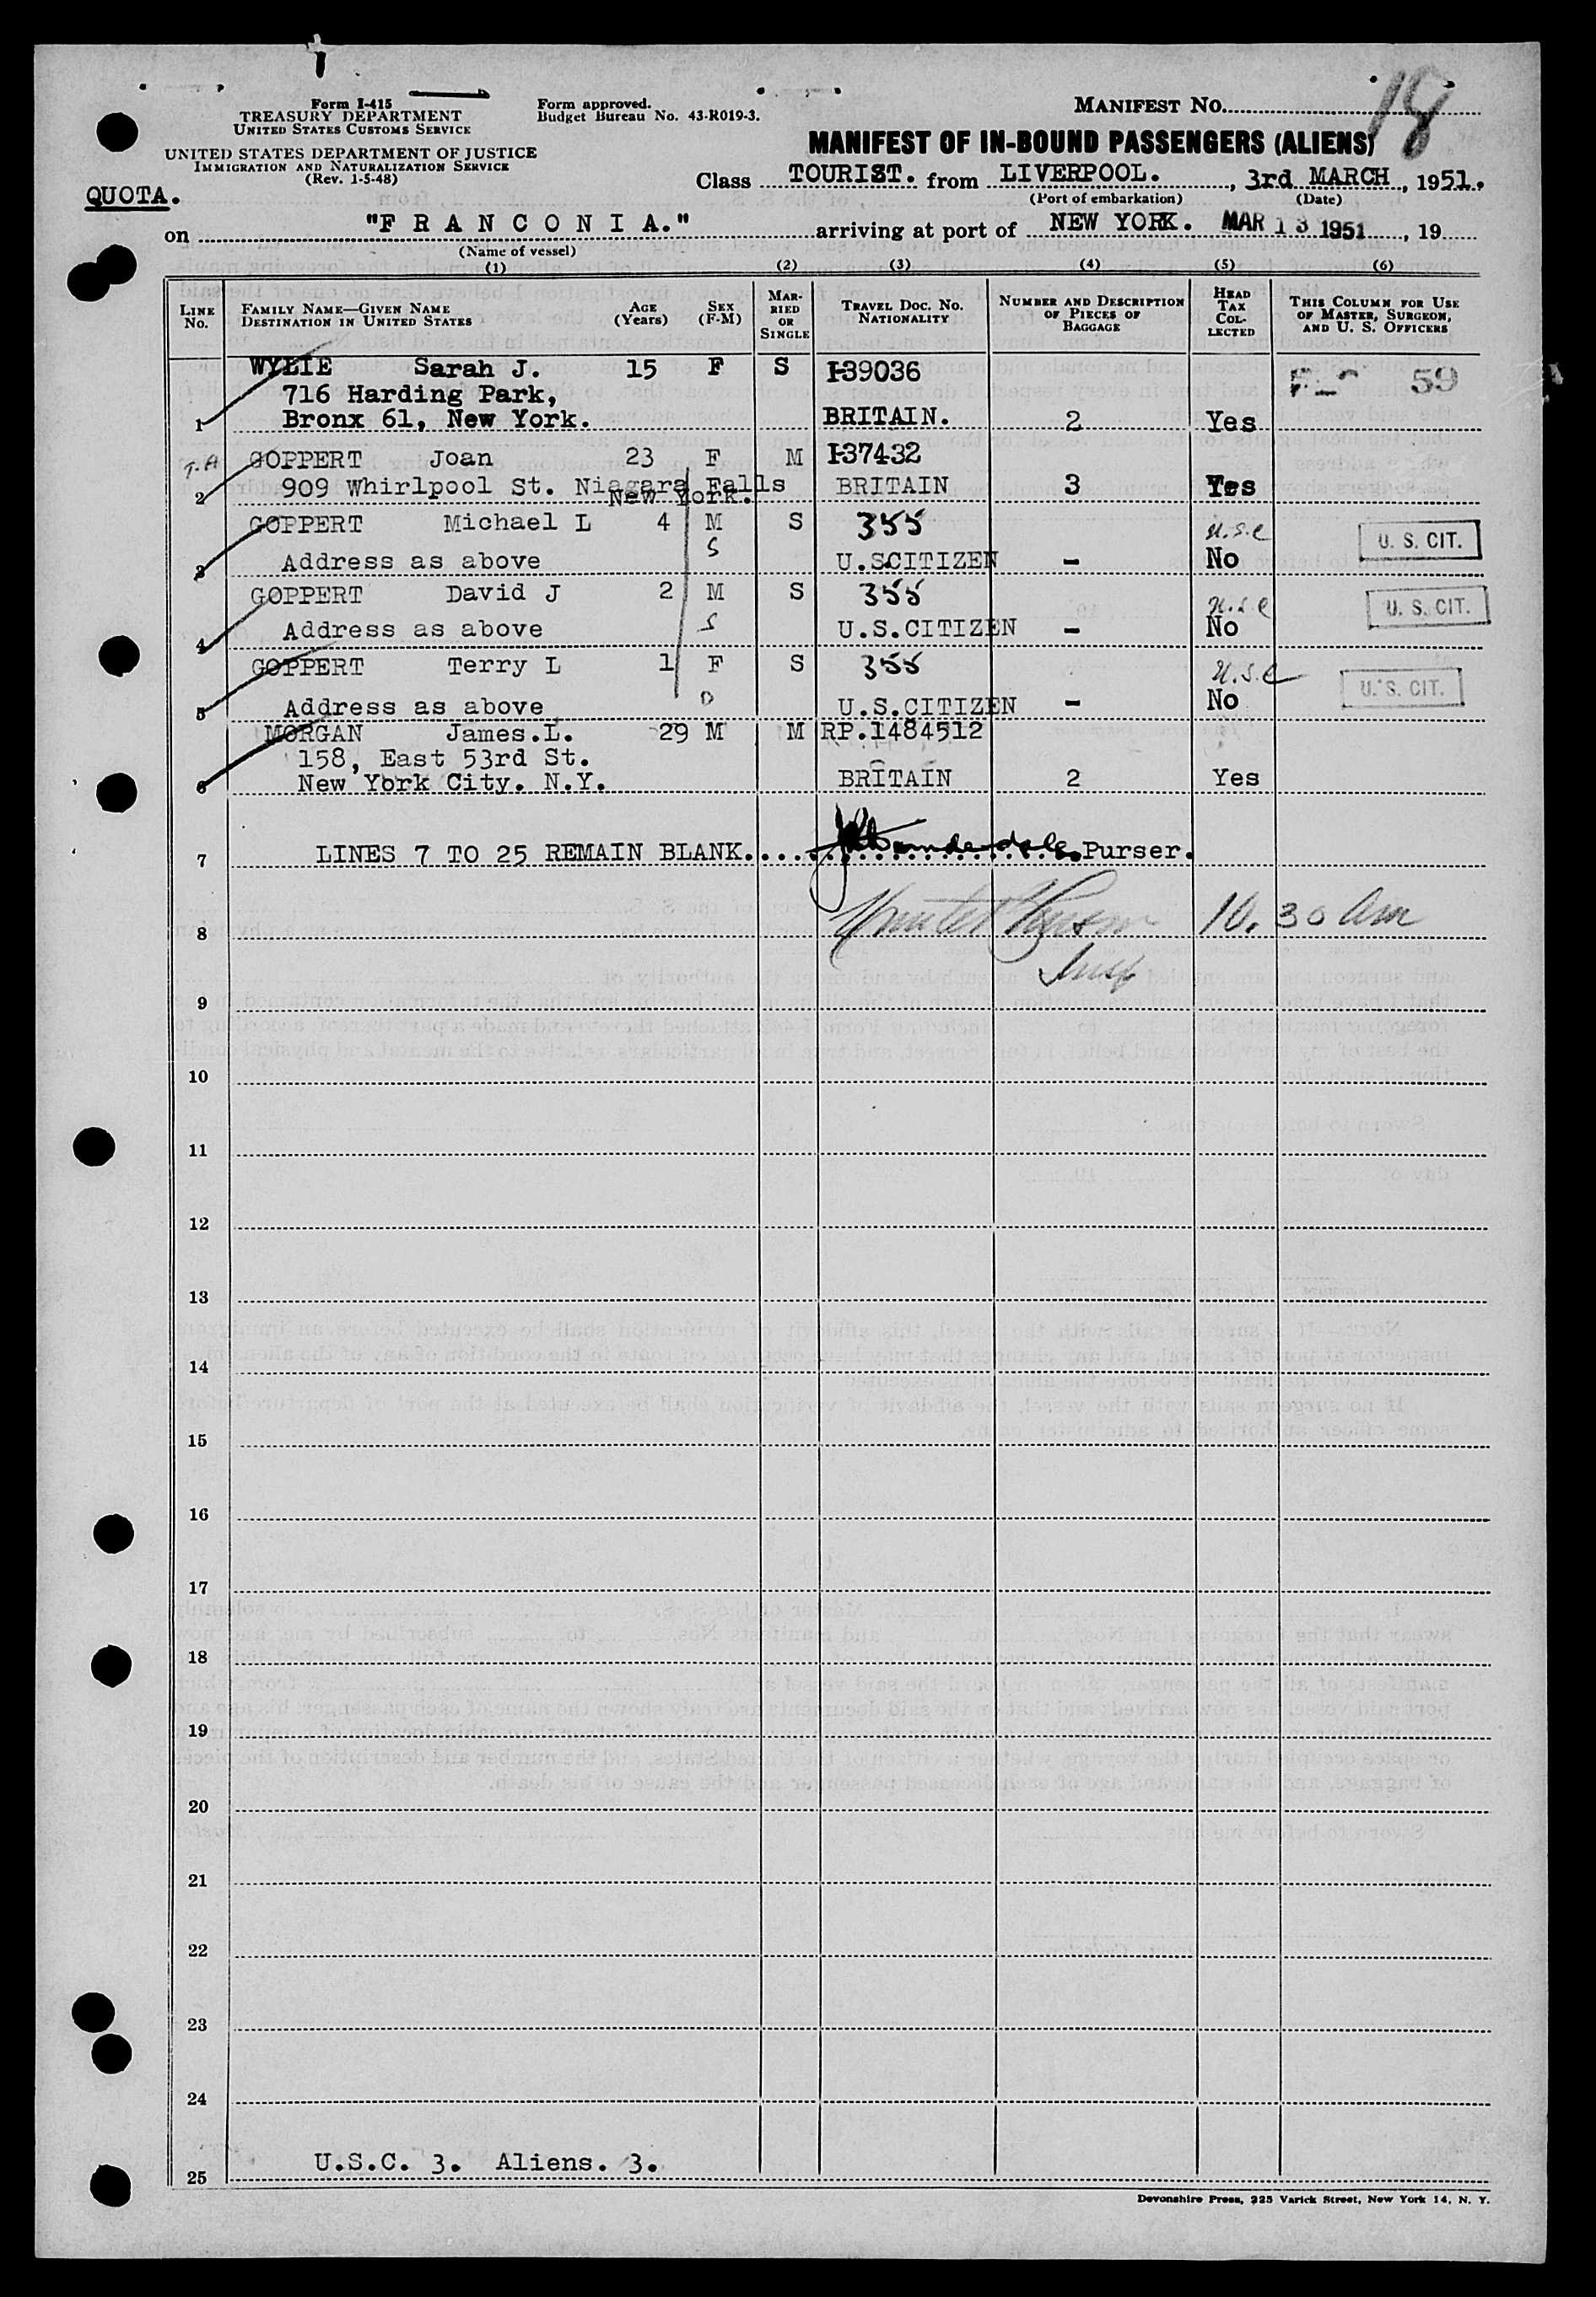 Form I-415
TREASURY DEPARTMENT
UNITED STATES CUSTOMS SERVICE
UNITED STATES DEPARTMENT OF JUSTICE
IMMIGRATION AND NATURALIZATION SERVICE
(Rev. 1-5-48)
Form approved.
Budget Bureau No. 43-R019-3.
MANIFEST NO. 18
MANIFEST OF IN-BOUND PASSENGERS (ALIENS)
Class TOURIST. from LIVERPOOL., 3rd MARCH, 1951.
(Port of embarkation) (Date)
QUOTA.
on "F R A N C O N I A." arriving at port of NEW YORK. MAR 13 1951, 19
(Name of vessel)
(1) (2) (3) (4) (5) (6)
LINE NO.
FAMILY NAME—GIVEN NAME
DESTINATION IN UNITED STATES
AGE (Years)
SEX (F-M)
MARRIED OR SINGLE
TRAVEL DOC. NO.
NATIONALITY
NUMBER AND DESCRIPTION OF PIECES OF BAGGAGE
HEAD TAX COLLECTED
THIS COLUMN FOR USE OF MASTER, SURGEON, AND U. S. OFFICERS
WYLIE Sarah J. 15 F S I-39036 59
716 Harding Park,
1 Bronx 61, New York. BRITAIN. 2 Yes
T.A GOPPERT Joan 23 F M I-37432
2 909 Whirlpool St. Niagara Falls BRITAIN 3 Yes
New York.
GOPPERT Michael L 4 M S 355 U.S.C U. S. CIT.
S
3 Address as above U.SCITIZEN - No
GOPPERT David J 2 M S 355 U.S.C U. S. CIT.
S
4 Address as above U.S.CITIZEN - No
GOPPERT Terry L 1 F S 355 U.S.C U. S. CIT.
D
5 Address as above U.S.CITIZEN - No
MORGAN James.L. 29 M M RP.1484512
158, East 53rd St.
6 New York City. N.Y. BRITAIN 2 Yes
7 LINES 7 TO 25 REMAIN BLANK. Purser.
8 10.30 Am
Insp
9
10
11
12
13
14
15
16
17
18
19
20
21
22
23
24
25 U.S.C. 3. Aliens. 3.
Devonshire Press, 225 Varick Street, New York 14, N. Y.